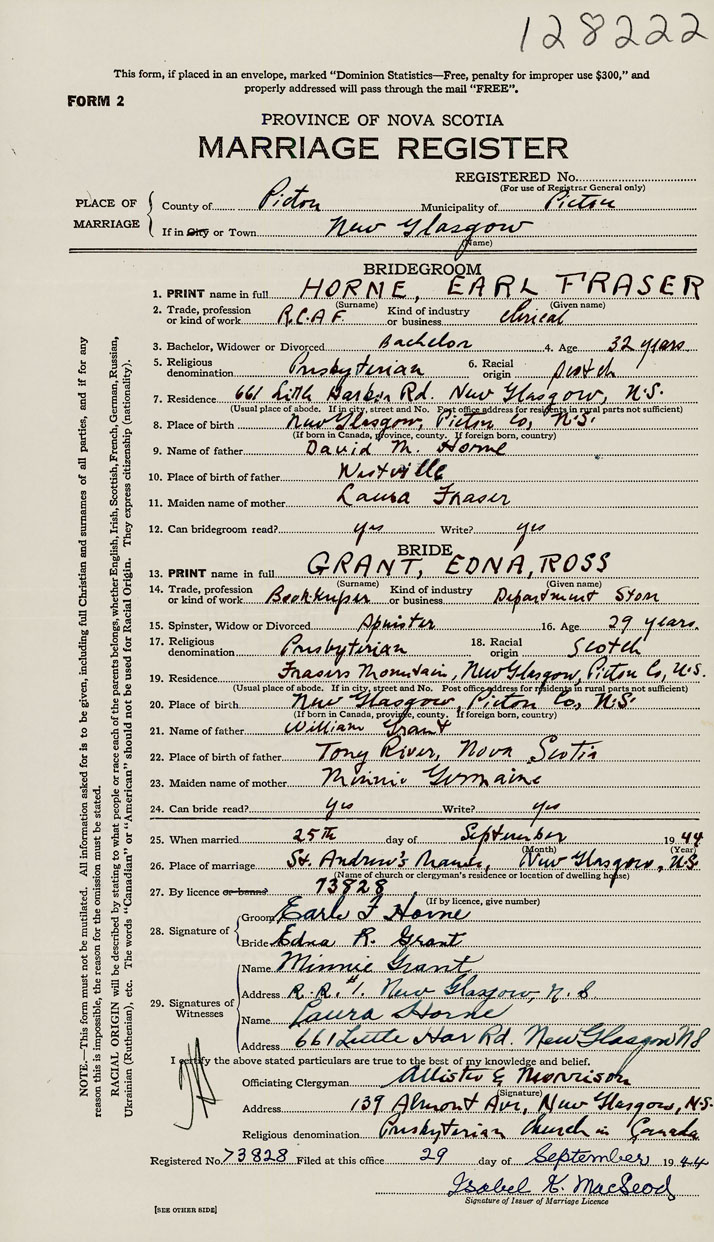 128222
This form, if placed in an envelope, marked "Dominion Statistics—Free, penalty for improper use $300," and
properly addressed will pass through the mail "FREE".
FORM 2
PROVINCE OF NOVA SCOTIA
MARRIAGE REGISTER
REGISTERED No.
(For use of Registrar General only)
PLACE OF MARRIAGE
County of Pictou Municipality of Pictou
If in City or Town New Glasgow
(Name)
BRIDEGROOM
1. PRINT name in full HORNE, EARL FRASER
(Surname) (Given name)
2. Trade, profession or kind of work R.C.A.F. Kind of industry or business Clerical
3. Bachelor, Widower or Divorced Bachelor 4. Age 32 years
5. Religious denomination Presbyterian 6. Racial origin Scotch
7. Residence 661 Little Harbor Rd. New Glasgow, N.S.
(Usual place of abode. If in city, street and No. Post office address for residents in rural parts not sufficient)
8. Place of birth New Glasgow, Pictou Co, N.S.
(If born in Canada, province, county. If foreign born, country)
9. Name of father David M. Horne
10. Place of birth of father Westville
11. Maiden name of mother Laura Fraser
12. Can bridegroom read? yes Write? yes
BRIDE
13. PRINT name in full GRANT, EDNA, ROSS
(Surname) (Given name)
14. Trade, profession or kind of work Bookkeeper Kind of industry or business Department Store
15. Spinster, Widow or Divorced Spinster 16. Age 29 years.
17. Religious denomination Presbyterian 18. Racial origin Scotch
19. Residence Frasers Mountain, New Glasgow, Pictou Co, N.S.
(Usual place of abode. If in city, street and No. Post office address for residents in rural parts not sufficient)
20. Place of birth New Glasgow, Pictou Co, N.S.
(If born in Canada, province, county. If foreign born, country)
21. Name of father William Grant
22. Place of birth of father Tony River, Nova Scotia
23. Maiden name of mother Minnie Germaine
24. Can bride read? yes Write? yes
25. When married 25th day of September 1944
(Month) (Year)
26. Place of marriage St. Andrew's Manse, New Glasgow, N.S.
(Name of church or clergyman's residence or location of dwelling house)
27. By licence or banns 73828
(If by licence, give number)
28. Signature of
Groom Earle F Horne
Bride Edna R. Grant
29. Signatures of Witnesses
Name Minnie Grant
Address R.R. #1. New Glasgow, N.S.
Name Laura Horne
Address 661 Little Har Rd. New Glasgow NS
I certify the above stated particulars are true to the best of my knowledge and belief.
Officiating Clergyman Allister E Morrison
(Signature)
Address 139 Almont Ave, New Glasgow, N.S.
Religious denomination Presbyterian Church in Canada
Registered No. 73828 Filed at this office 29 day of September 1944
Isobel K. MacLeod
Signature of Issuer of Marriage Licence
[SEE OTHER SIDE]
NOTE.—This form must not be mutilated. All information asked for is to be given, including full Christian and surnames of all parties, and if for any
reason this is impossible, the reason for the omission must be stated.
RACIAL ORIGIN will be described by stating to what people or race each of the parents belongs, whether English, Irish, Scottish, French, German, Russian,
Ukrainian (Ruthenian), etc. The words "Canadian" or "American" should not be used for Racial Origin. They express citizenship (nationality).